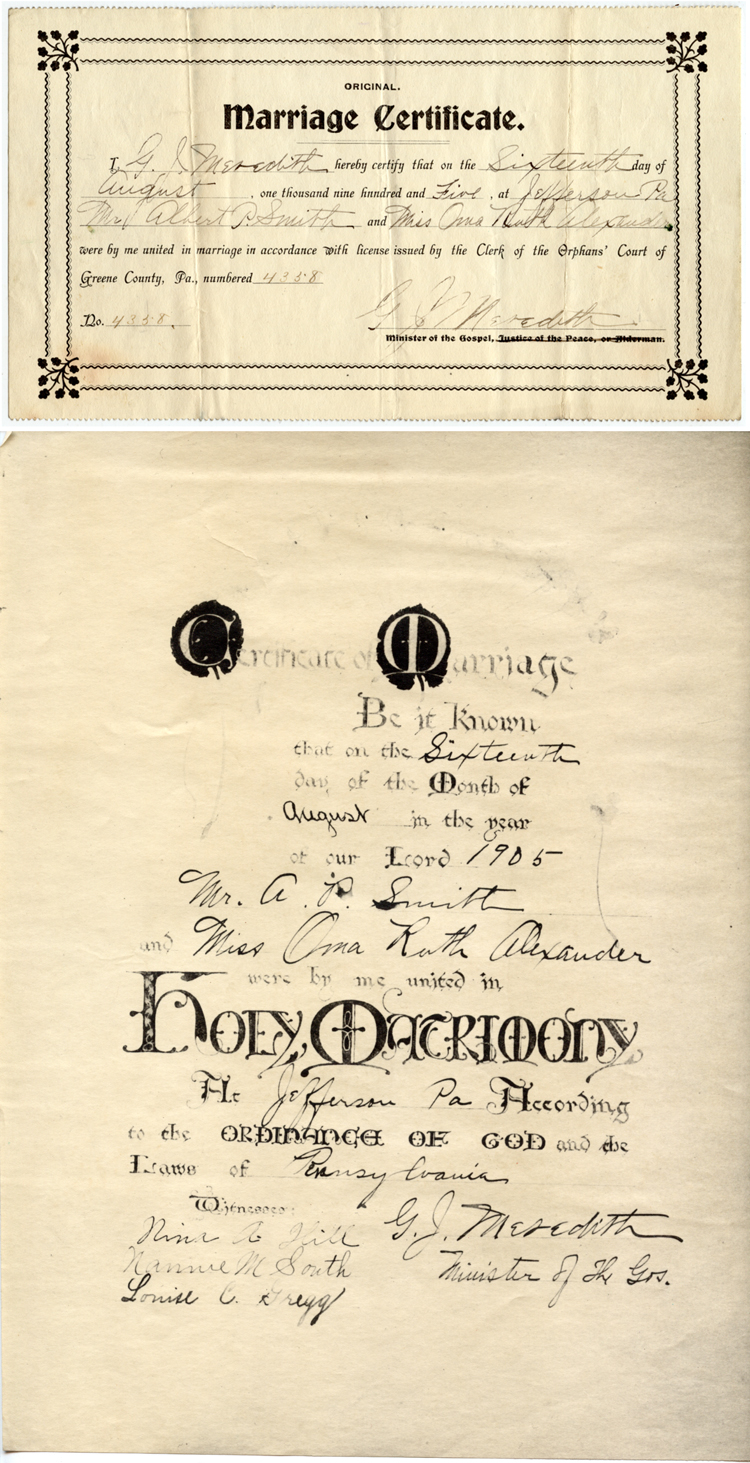 ORIGINAL.
Marriage Certificate.
I, G. J. Meredith hereby certify that on the Sixteenth day of
August, one thousand nine hnndred and Five, at Jefferson Pa
Mr. Albert P. Smith and Miss Oma Ruth Alexander
were by me united in marriage in accordance with license issued by the Clerk of the Orphans' Court of
Greene County, Pa., numbered 4358
No. 4358.
G. J. Meredith
Minister of the Gospel, Justice of the Peace, or Alderman.
Certificate of Marriage
Be it Known
that on the Sixteenth
day of the Month of
August in the year
of our Lord 1905
Mr. A. P. Smith
and Miss Oma Ruth Alexander
were by me united in
HOLY MATRIMONY
At Jefferson Pa According
to the ORDINANCE OF GOD and the
Laws of Pennsylvania
Witnesses:
Nina A Hill
G. J. Meredith
Nannie M South
Minister of The Gos.
Louise C. Gregg